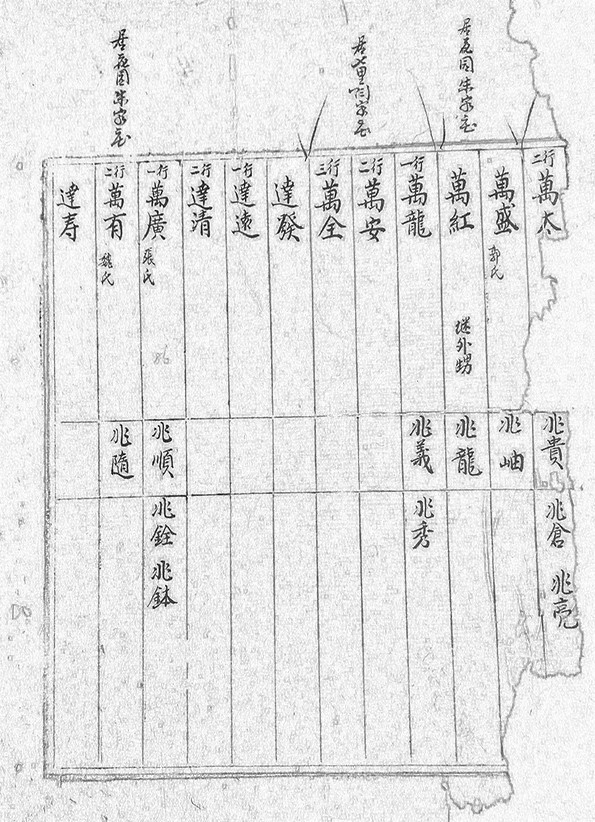 居园朱家
居家
居园朱家
行二
萬太
兆貴
兆倉 兆亮
萬盛 郭氏
兆岫
萬紅 继外甥
兆龍
行一
萬龍
兆義
兆秀
行二
萬安
行三
萬全
達發
行一
達遠
行二
達清
行一
萬廣 張氏
兆順
兆銓 兆鉢
行二
萬有 魏氏
兆隨
達寿